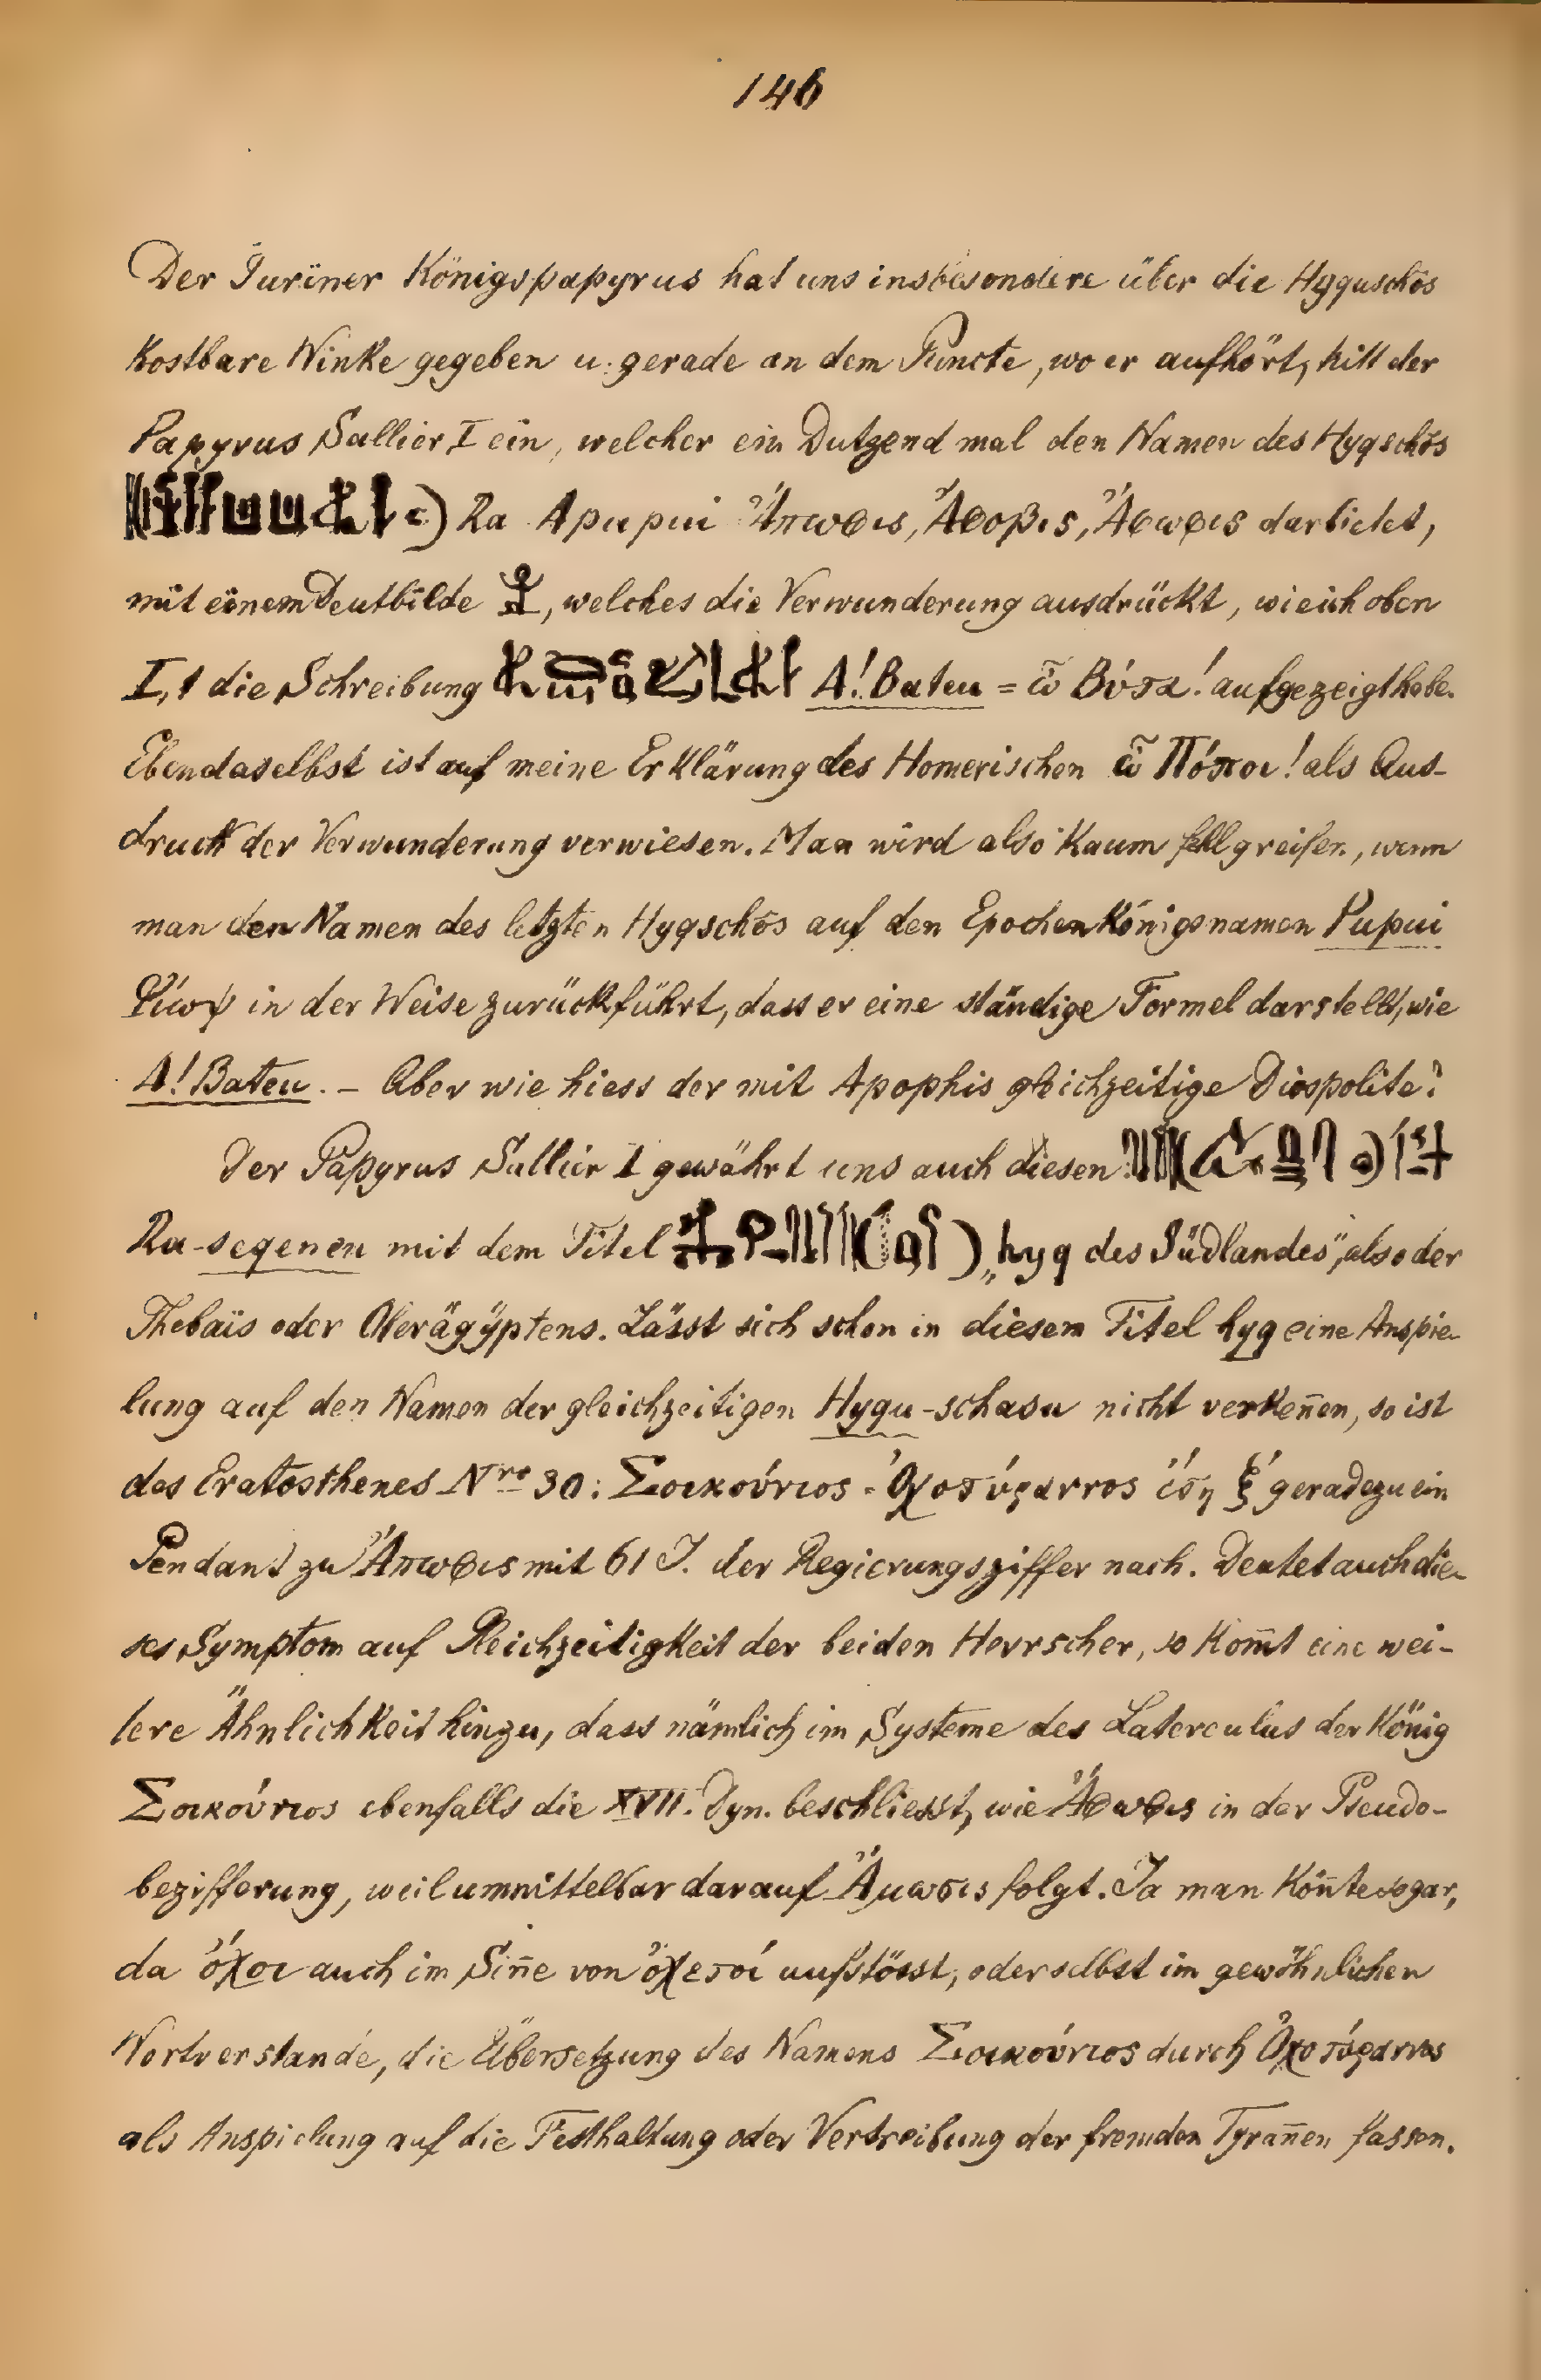 146
Der Turiner Königspapyrus hat uns insbesondere über die Hyquschôs
kostbare Winke gegeben u. gerade an dem Puncte, wo er aufhört, hilt der
Papyrus Sallier I ein, welcher ein Dutzend mal den Namen des Hyqschôs
Ra Apupui Ἄπωφις, Ἄφοβις, Ἄφωφις darbietet,
mit einem Deutbilde, welches die Verwunderung ausdrückt, wie ich oben
I, 1 die Schreibung A! Bateu = ὦ Βύτα! aufgezeigt habe.
Ebendaselbst ist auf meine Erklärung des Homerischen ὦ Πόποι! als Aus-
druck der Verwunderung verwiesen. Man wird also kaum fehlgreifen, wenn
man den Namen des letzten Hyqschôs auf den Epochenkönigsnamen Pupui
in der Weise zurückführt, dass er eine ständige Formel darstellt, wie
A! Bateu. – Aber wie hiess der mit Apophis gleichzeitige Diospolite?
Der Papyrus Sallier I gewährt uns auch diesen:
Ra-seqenen mit dem Titel „hyq des Südlandes", also der
Thebaïs oder Oberägyptens. Lässt sich schon in diesem Titel hyq eine Anspie-
lung auf den Namen der gleichzeitigen Hyqu-schasu nicht verkeñen, so ist
des Eratosthenes Nro 30: Σοικούνιος Ὀχοτύραννος ἔτη ξ' geradezu ein
Pendant zu Ἄπωφις mit 61 J. der Regierungsziffer nach. Deutet auch die-
ses Symptom auf Gleichzeitigkeit der beiden Herrscher, so kom̃t eine wei-
tere Ähnlichkeit hinzu, dass nämlich im Systeme des Laterculus der König
Σοικούνιος ebenfalls die XVII. Dyn. beschliesst, wie Ἄφωφις in der Pseudo-
bezifferung, weil unmittelbar darauf Ἄμωσις folgt. Ja man köñte sogar,
da ὄχοι auch im Siñe von ὀχετοί aufstösst, oder selbst im gewöhnlichen
Wortverstande, die Übersetzung des Namens Σοικούνιος durch Ὀχοτύραννος
als Anspielung auf die Festhaltung oder Vertreibung der fremden Tyrañen fassen.